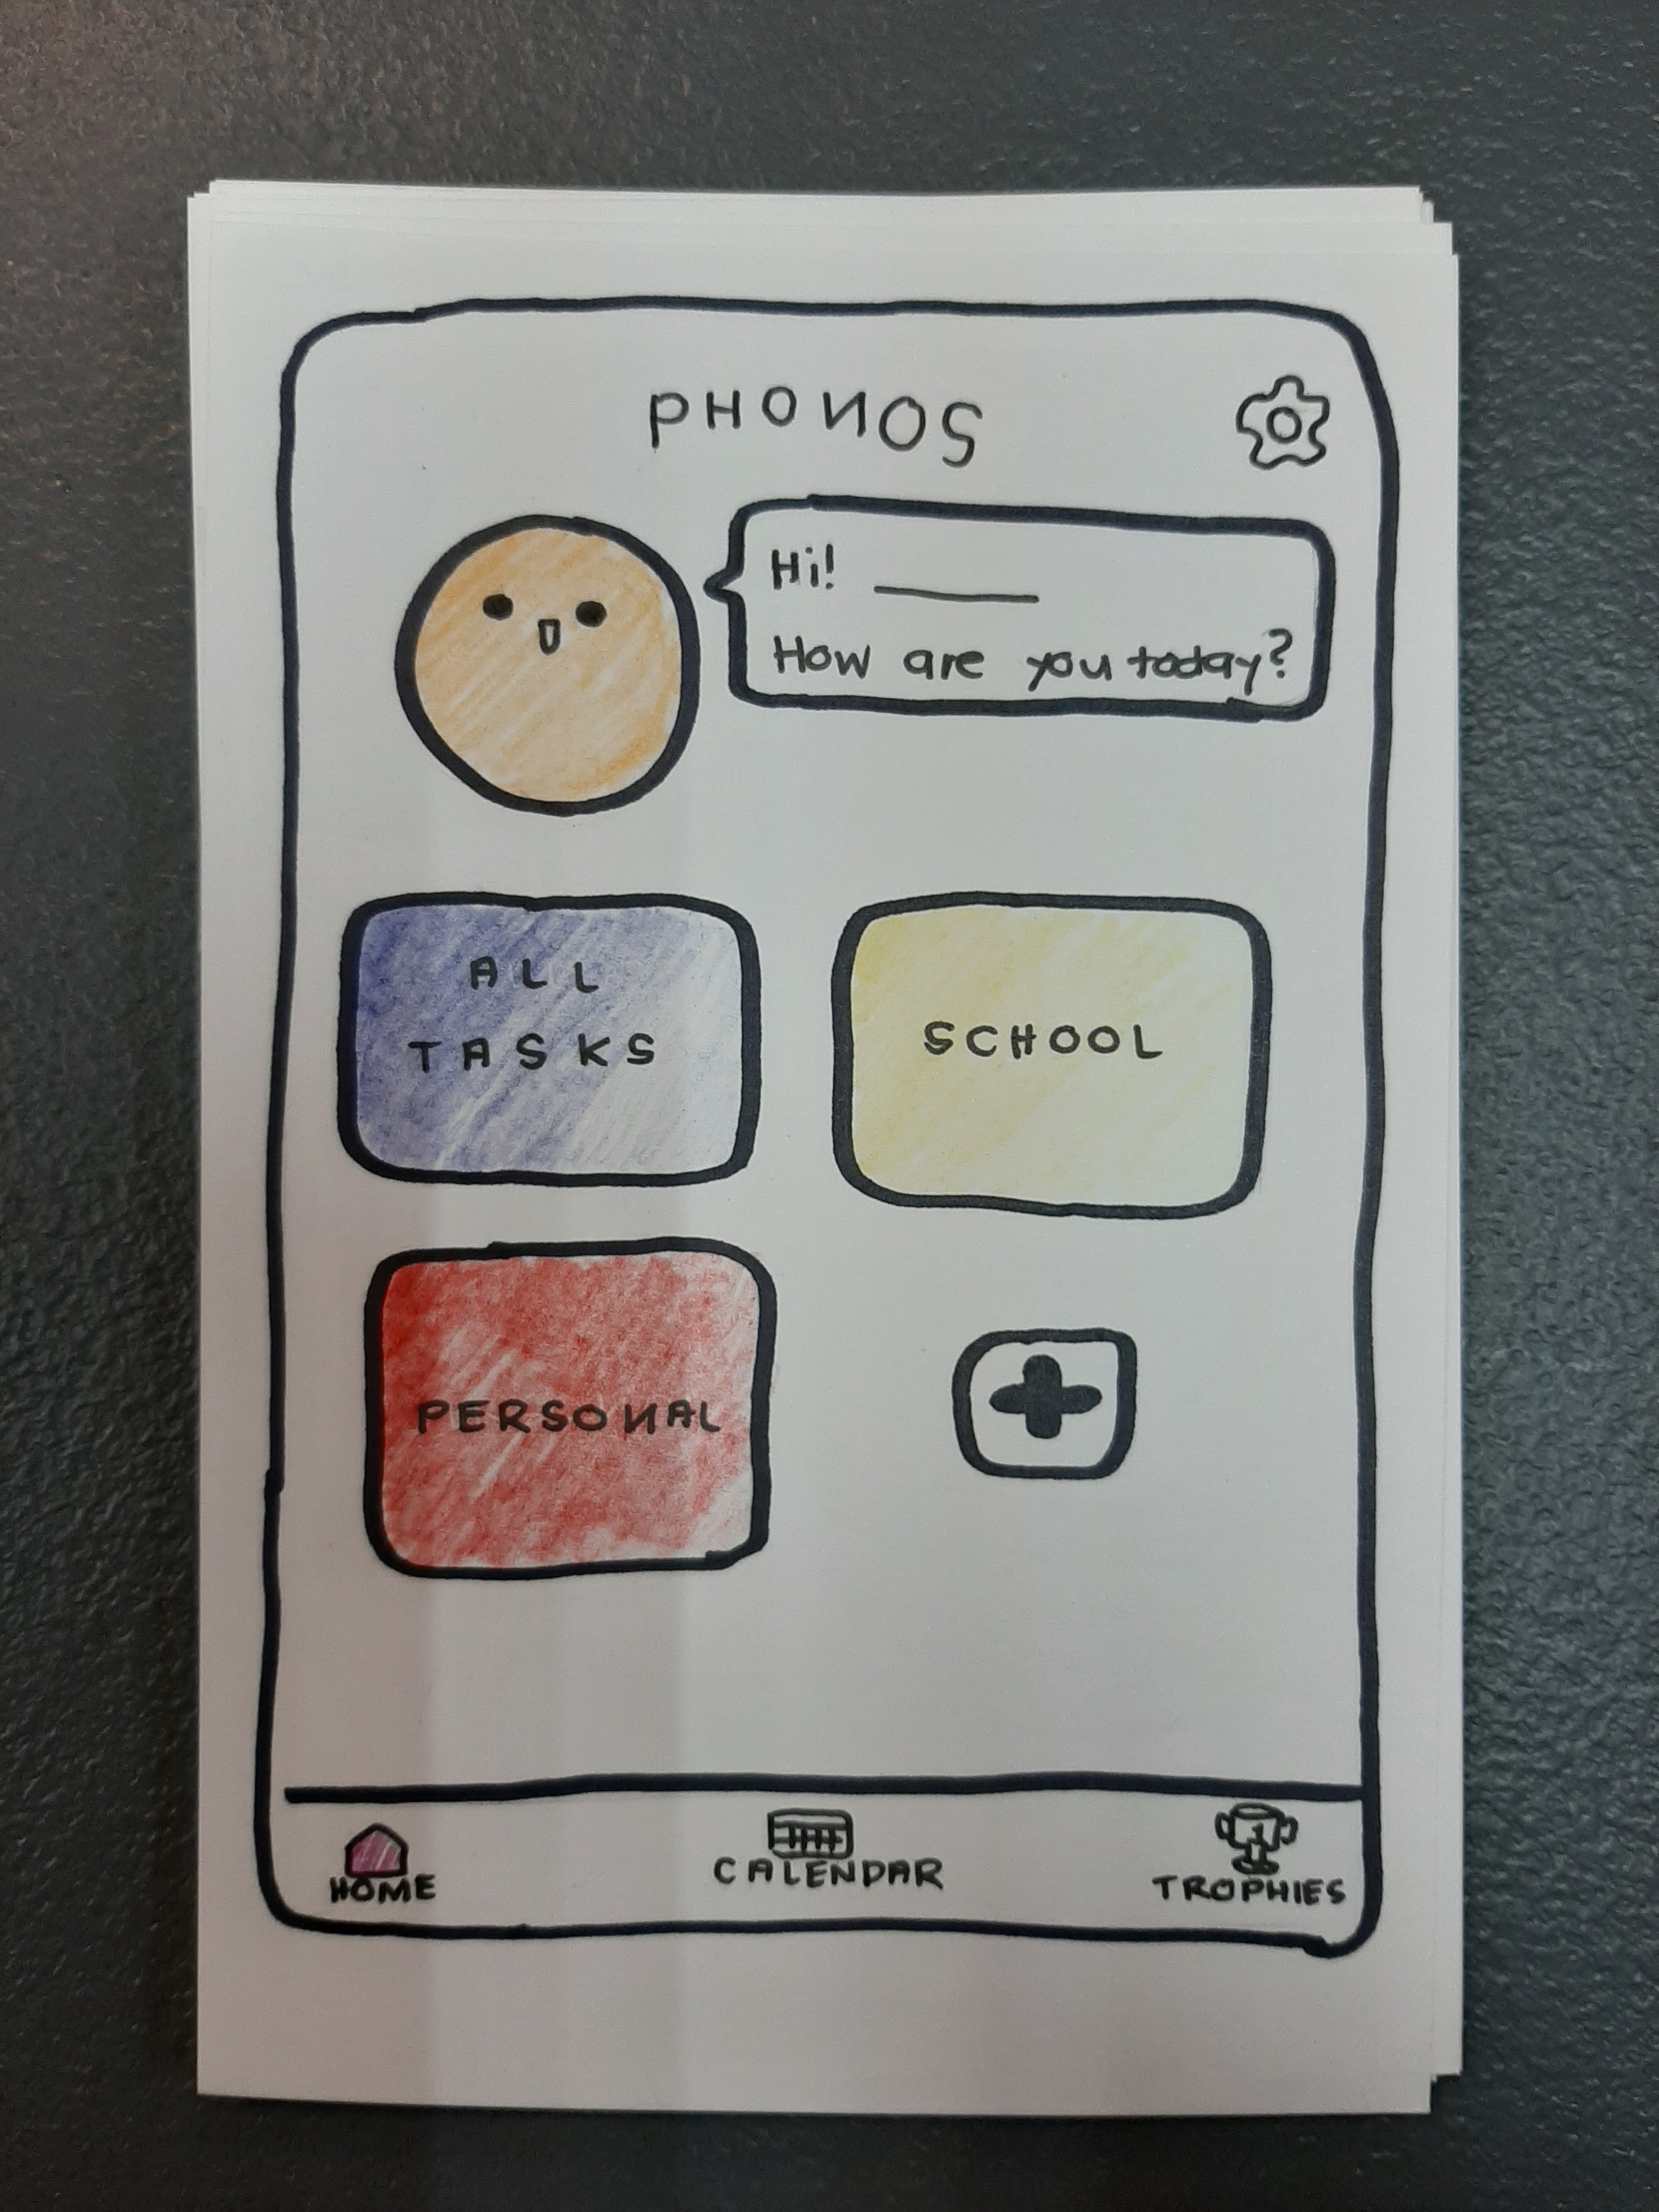 PHONOS
Hi! ____
How are you today?
ALL
TASKS
SCHOOL
PERSONAL
HOME
CALENDAR
1
TROPHIES